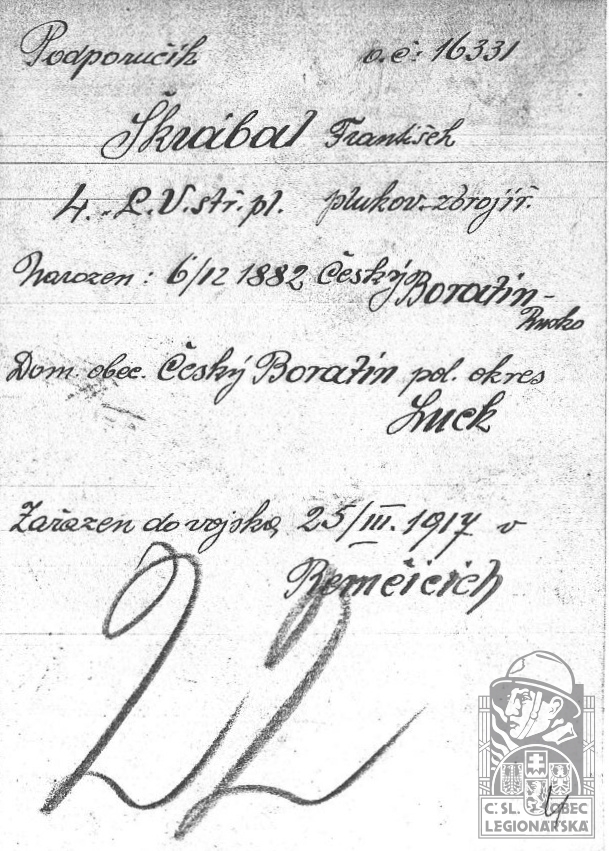 Podporučík o.č: 16331
Škrabal František
4. L.V. stř. pl. plukov. zbrojíř.
Narozen: 6/12 1882 Český Boratín -
Rusko
Dom. obec. Český Boratín pol. okres
Luck
Zařazen do vojska 25/III. 1917 v
Remčicích
22
4
Č.SL. OBEC
LEGIONÁŘSKÁ